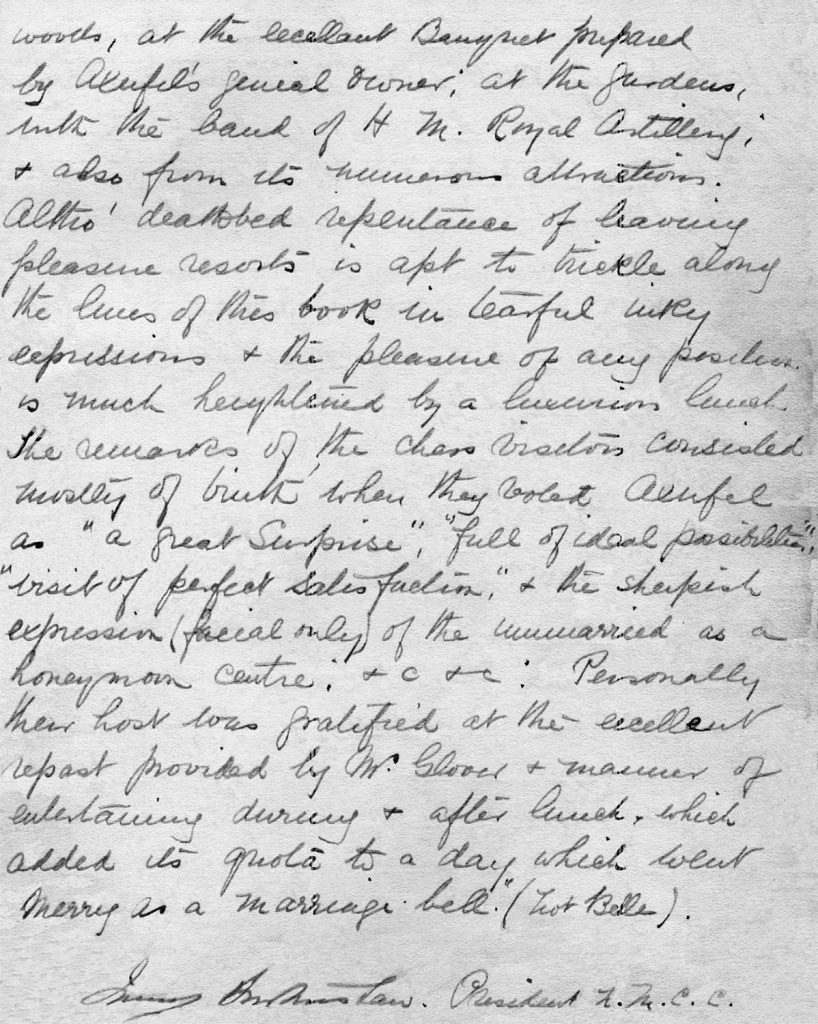 woods, at the excellent Banquet prepared
by Axenfel's genial owner; at the gardens,
with the band of H M. Royal Artillery;
+ also from its numerous attractions.
Altho' deathbed repentance of leaving
pleasure resorts is apt to trickle along
the lines of this book in tearful inky
expressions + the pleasure of any position
is much heightened by a luxurious lunch.
The remarks of the chess visitors consisted
mostly of truth when they voted Axenfel
as "a great Surprise", "full of ideal possibilities",
"visit of perfect satisfaction," + the sheepish
expression (facial only) of the unmarried as a
honeymoon centre; + c + c: Personally
their host was gratified at the excellent
repast provided by Mr. Glover + manner of
entertaining during + after lunch, which
added its quota to a day which went
merry as a marriage bell." (not Belle).
President N. M. C. C.